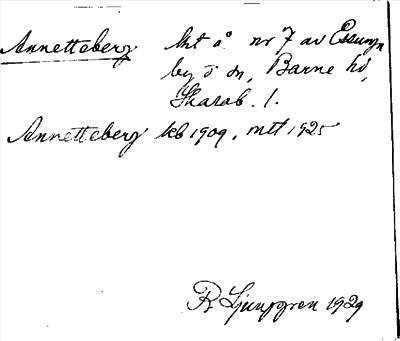 Annetteberg   lht å nr 7 av Essunga
by o sn, Barne hd,
Skarab. l.
Annetteberg kb 1909, mtl 1925
R Ljunggren 1929